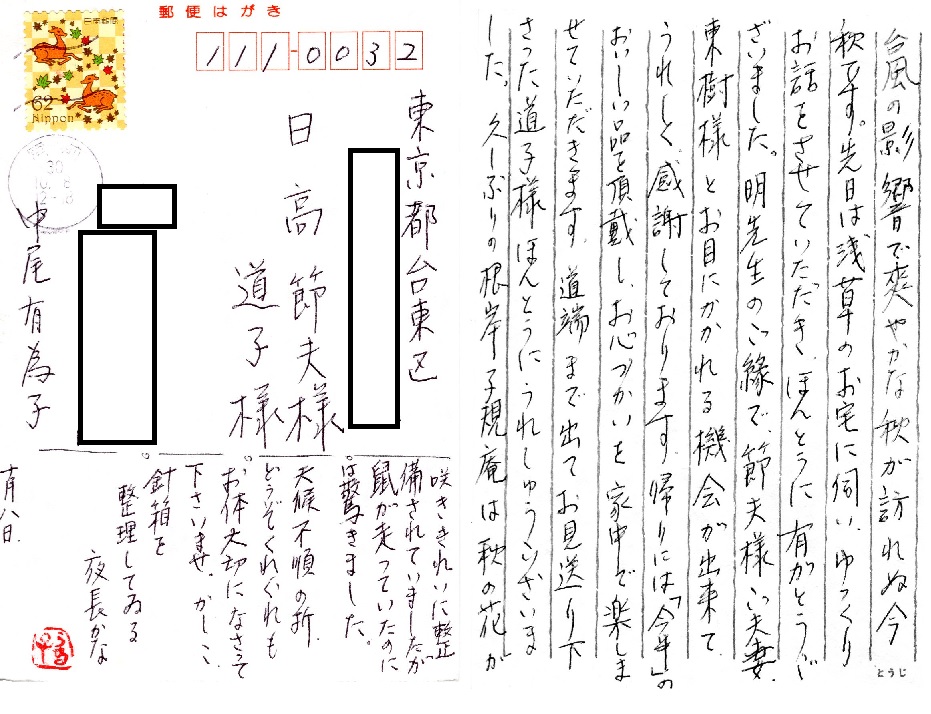 郵便はがき
日本郵便
62
Nippon
30
111-0032
東京都台東区
日高節夫様
道子様
中尾有為子
台風の影響で爽やかな秋が訪れぬ今
秋です。先日は浅草のお宅に伺い、ゆっくり
お話をさせていただき、ほんとうに有がとうご
ざいました。明先生のご縁で、節夫様ご夫妻、
東樹様とお目にかかれる機会が出来て
うれしく感謝しております。帰りには「今半」の
おいしい品を頂戴し、お心づかいを家中で楽しま
せていただきます。道端まで出てお見送り下
さった道子様ほんとうにうれしゅうございま
した。久しぶりの根岸子規庵は秋の花が
咲ききれいに整
備されていましたが
鼠が走っていたのに
は驚きました。
天候不順の折、
どうぞくれぐれも
お体大切になさって
下さいませ。かしこ
針箱を
整理してゐる
夜長かな
十月八日
とうじ